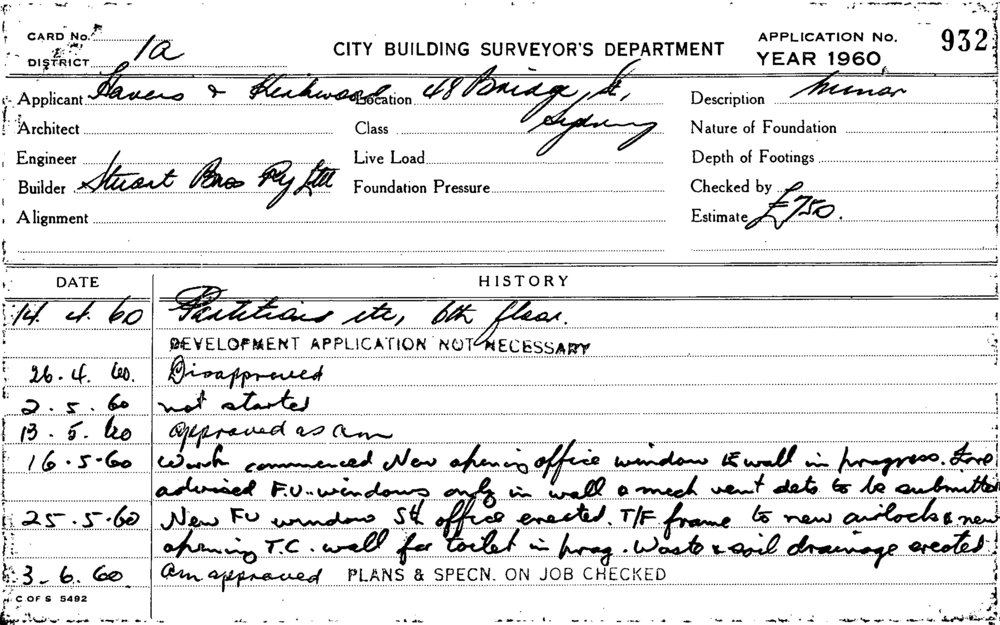 CARD No.
DISTRICT 1a
CITY BUILDING SURVEYOR'S DEPARTMENT
APPLICATION No. 932
YEAR 1960
Applicant Havers & Kirkwood Location 48 Bridge St, Sydney Description Minor
Architect Class Nature of Foundation
Engineer Live Load Depth of Footings
Builder Stuart Bros Pty Ltd Foundation Pressure Checked by
Alignment Estimate £750.
DATE HISTORY
14. 4. 60 Partitions etc, 6th floor.
DEVELOPMENT APPLICATION NOT NECESSARY
26. 4. 60. Disapproved
2. 5. 60 not started
13. 5. 60 approved as am
16.5.60 Work commenced New opening office window E wall in progress.
advised F.V. windows only in wall & mech vent dets to be submitted
25.5.60 New FV window Sth office erected. T/F frame to new airlocks & new
opening T.C. wall for toilet in prog. Waste & soil drainage erected
3. 6. 60. am approved PLANS & SPECN. ON JOB CHECKED
C OF S 5492